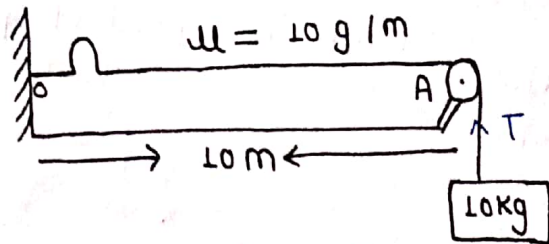 μ = 10 g/m
O
A
T
10m
10kg